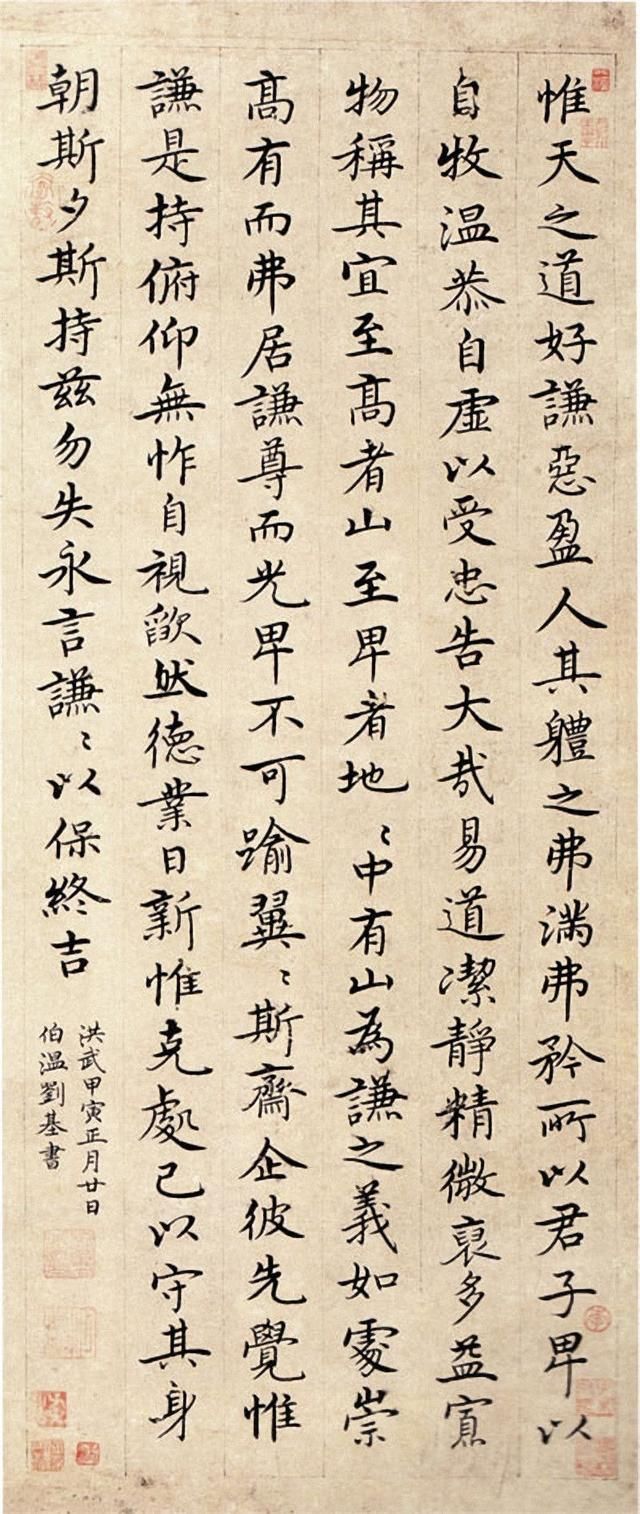 惟天之道好謙惡盈人其軆之弗滿弗矜所以君子卑以
自牧温恭自虛以受忠告大哉易道潔靜精微裒多益寡
物稱其宜至髙者山至卑者地〻中有山為謙之義如處崇
髙有而弗居謙尊而光卑不可踰翼〻斯齋企彼先覺惟
謙是持俯仰無怍自視欿然德業日新惟克處己以守其身
朝斯夕斯持兹勿失永言謙〻以保終吉
洪武甲寅正月廿日
伯温劉基書